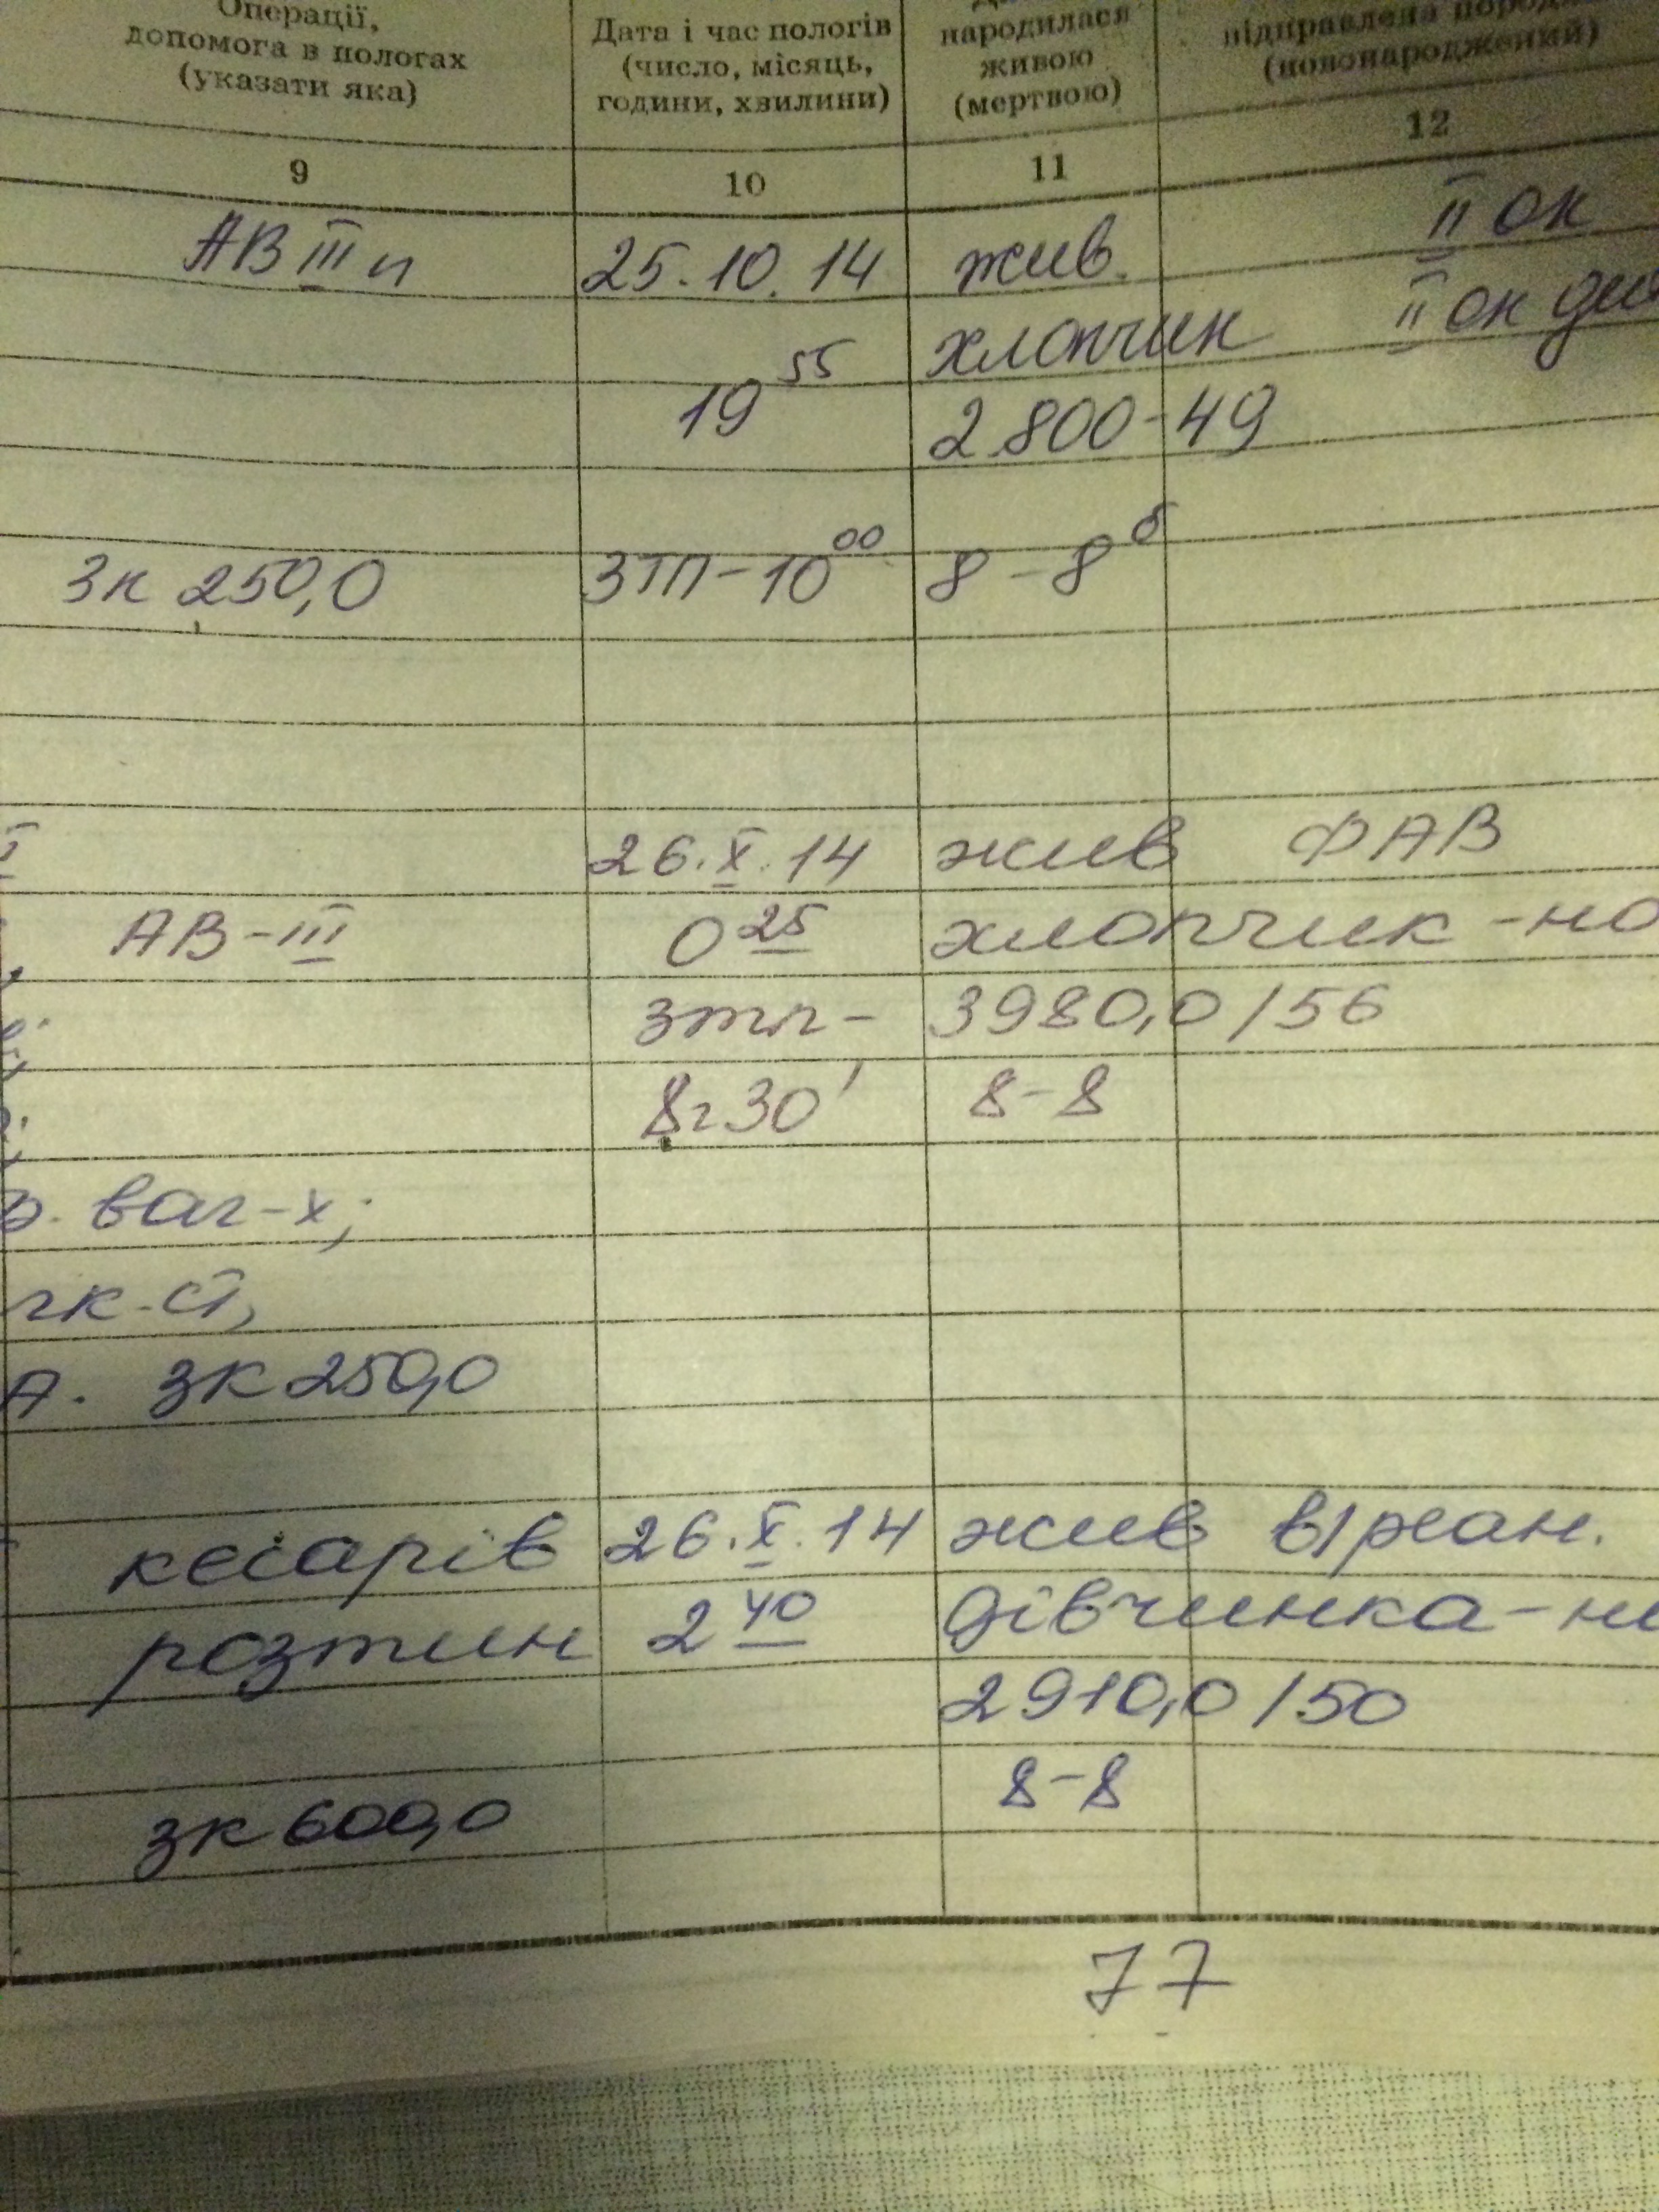 Операції,
допомога в пологах
(указати яка)
Дата і час пологів
(число, місяць,
години, хвилини)
народилася
живою
(мертвою)
відправлена
(новонароджений)
9 10 11 12
АВ III п 25.10.14 жив. II ок
хлопчик II ок
19 55 2.800-49
Зк 250,0 ЗТП-10 00 8-8 б
26.X.14 жив ФАВ
АВ-III 0 25 хлопчик -но
зтп- 3980,0/56
8г30' 8-8
ваг-х;
зк 250,0
кесарів 26.X.14 жив в/реан.
розтин 2 40 дівчинка-
2910,0/50
8-8
зк 600,0
77